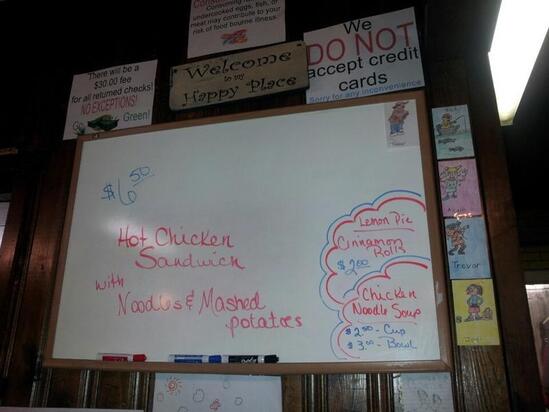 Consuming
undercooked eggs, fish, or
meat may contribute to your
risk of food bourne illness.
There will be a
$30.00 fee
for all returned checks!
NO EXCEPTIONS!
Go Green!
Welcome
to my
Happy Place
We
DO NOT
accept credit
cards
Sorry for any inconvenience
$6.50
Hot Chicken
Sandwich
with
Noodles & Mashed
potatoes
Lemon Pie
Cinnamon
Rolls
$2.00
Chicken
Noodle Soup
$2.50 - Cup
$3.00 - Bowl
Trevor